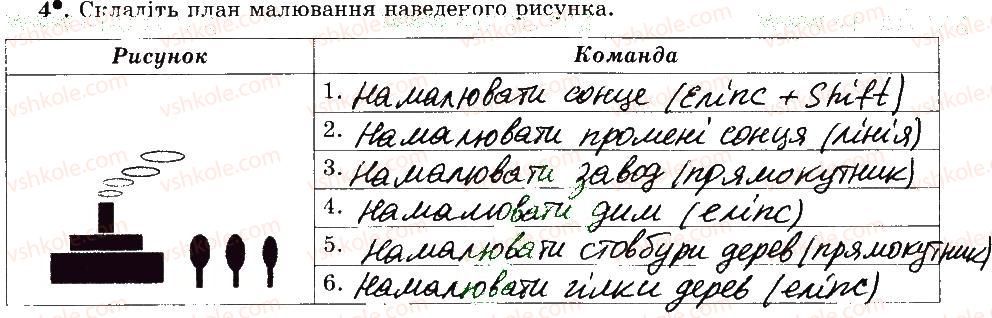 4•. Складіть план малювання наведеного рисунка.
Рисунок
Команда
1. Намалювати сонце (Еліпс + Shift)
2. Намалювати промені сонця (лінія)
3. Намалювати завод (прямокутник)
4. Намалювати дим (еліпс)
5. Намалювати стовбури дерев (прямокутник)
6. Намалювати гілки дерев (еліпс)